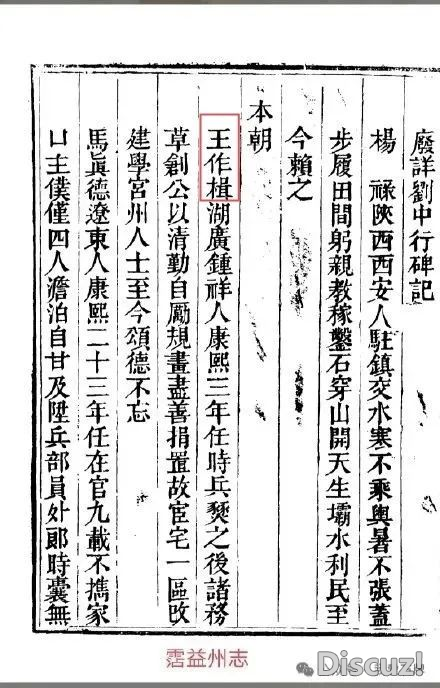 廢詳劉中行碑記
楊　祿陝西西安人駐鎮交水寒不乘輿暑不張蓋
步履田間躬親教稼鑿石穿山開天生壩水利民至
今賴之
本朝
王作楫湖廣鍾祥人康熙三年任時兵燹之後諸務
草創公以清勤自勵規畫盡善捐置故宦宅一區改
建學宮州人士至今頌德不忘
馬眞德遼東人康熙二十三年任在官九載不擕家
口主僕僅四人澹泊自甘及陞兵部員外郞時囊無
霑益州志
Discuz!